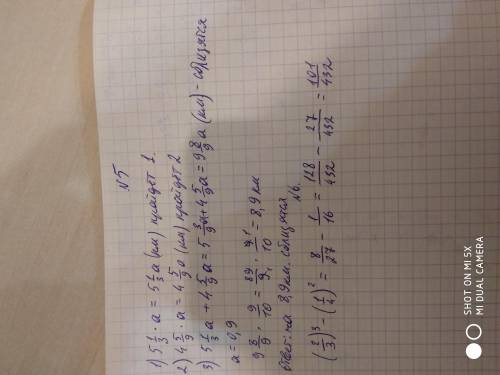 N5
1) 5 1/3 · a = 5 1/3 a (км) пройдёт 1.
2) 4 5/9 · a = 4 5/9 a (км) пройдёт 2
3) 5 1/3 a + 4 5/9 a = 5 3/9 a + 4 5/9 a = 9 8/9 a (км) - сблизятся
a = 0,9
9 8/9 · 9/10 = 89/9 · 9/10 = 8,9 км
ответ: на 8,9 км. сблизятся
N6.
(2/3)³ - (1/4)² = 8/27 - 1/16 = 128/432 - 27/432 = 101/432
SHOT ON MI 5X
MI DUAL CAMERA